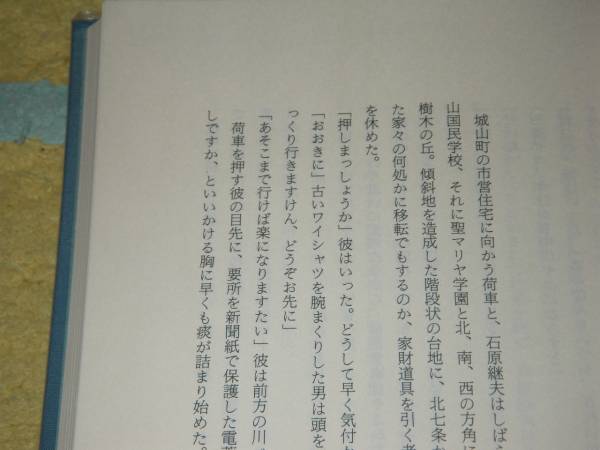 城山町の市営住宅に向かう荷車と、石原継夫はしば
山国民学校、それに聖マリヤ学園と北、南、西の方角に
樹木の丘。傾斜地を造成した階段状の台地に、北七条
た家々の何処かに移転でもするのか、家財道具を引く
を休めた。
「押しまっしょうか」彼はいった。どうして早く気付
「おおきに」古いワイシャツを腕まくりした男は頭を
っくり行きますけん、どうぞお先に」
「あそこまで行けば楽になりますたい」彼は前方の川
荷車を押す彼の目先に、要所を新聞紙で保護した電
しですか、といいかける胸に早くも痰が詰まり始めた。